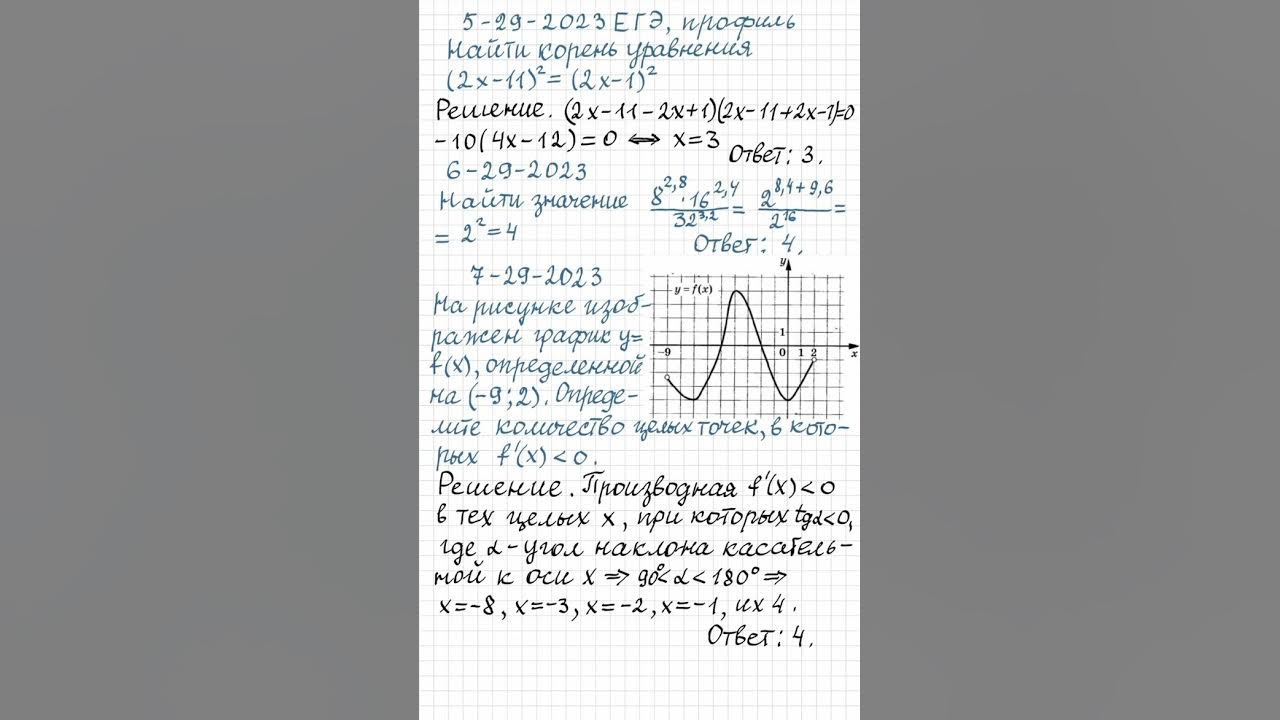 5-29-2023 ЕГЭ, профиль
Найти корень уравнения
(2x-11)²=(2x-1)²
Решение. (2x-11-2x+1)(2x-11+2x-1)=0
-10(4x-12)=0 ⟺ x=3
Ответ: 3.
6-29-2023
Найти значение 8^2,8·16^2,4/32^3,2 = 2^8,4+9,6/2^16 =
= 2²=4
Ответ: 4.
7-29-2023
На рисунке изоб-
ражен график y=
f(x), определенной
на (-9;2). Опреде-
лите количество целых точек, в кото-
рых f'(x)<0.
y
y=f(x)
1
-9 0 1 2 x
Решение. Производная f'(x)<0
в тех целых x, при которых tgα<0,
где α-угол наклона касатель-
ной к оси X ⇒ 90°<α<180° ⇒
x=-8, x=-3, x=-2, x=-1, их 4.
Ответ: 4.